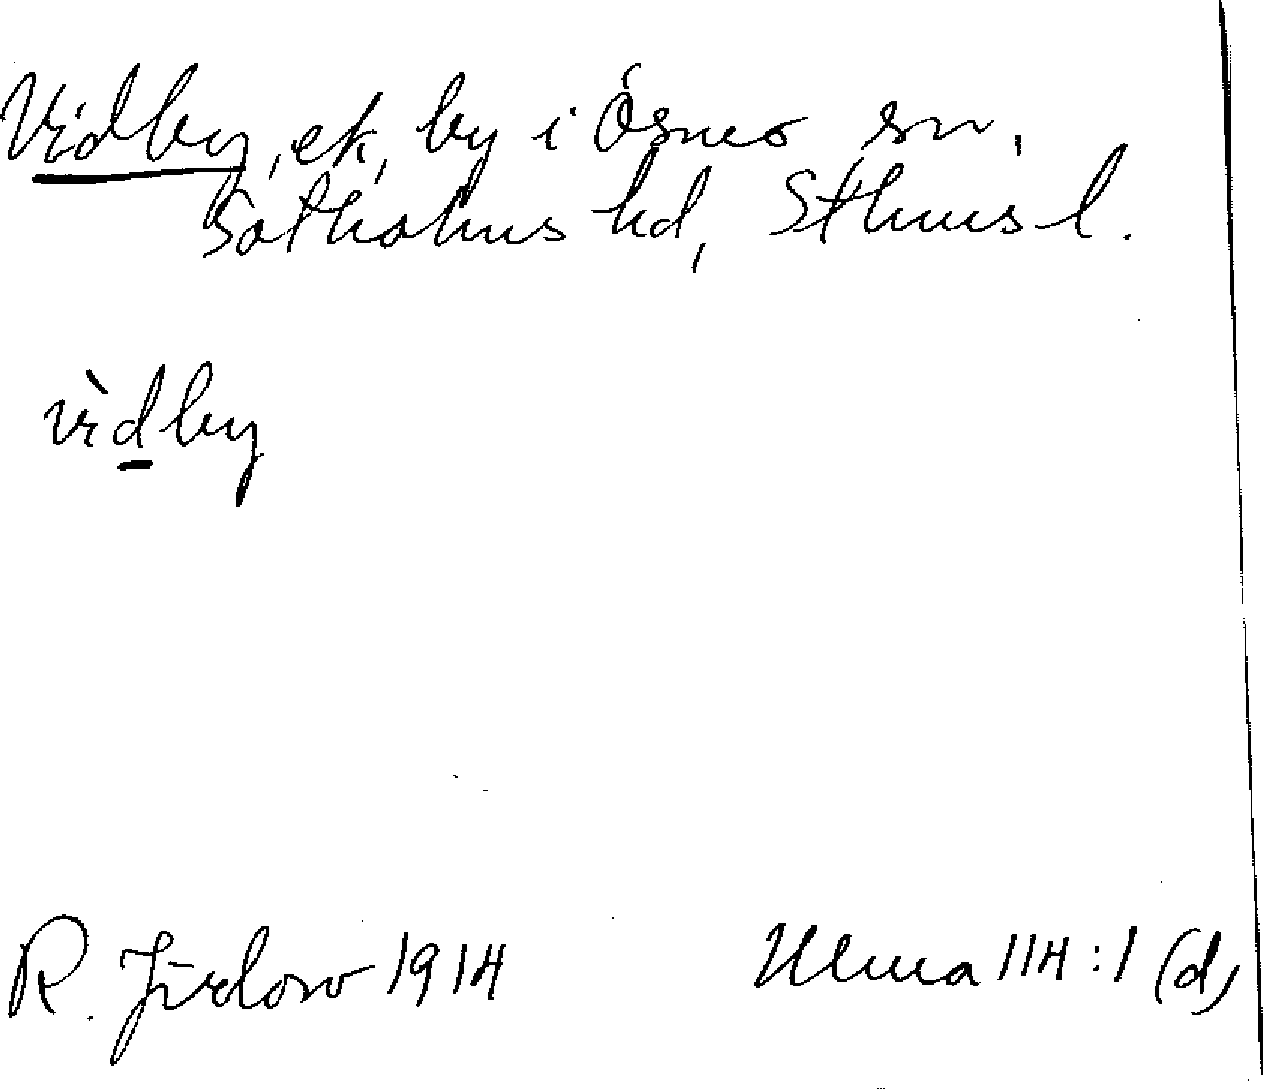 Vidby, ek, by i Ösmo sn,
Sotholms hd, Sthms l.
vìdby
R. Jirlow 1914
Ulma 114:1 (d)